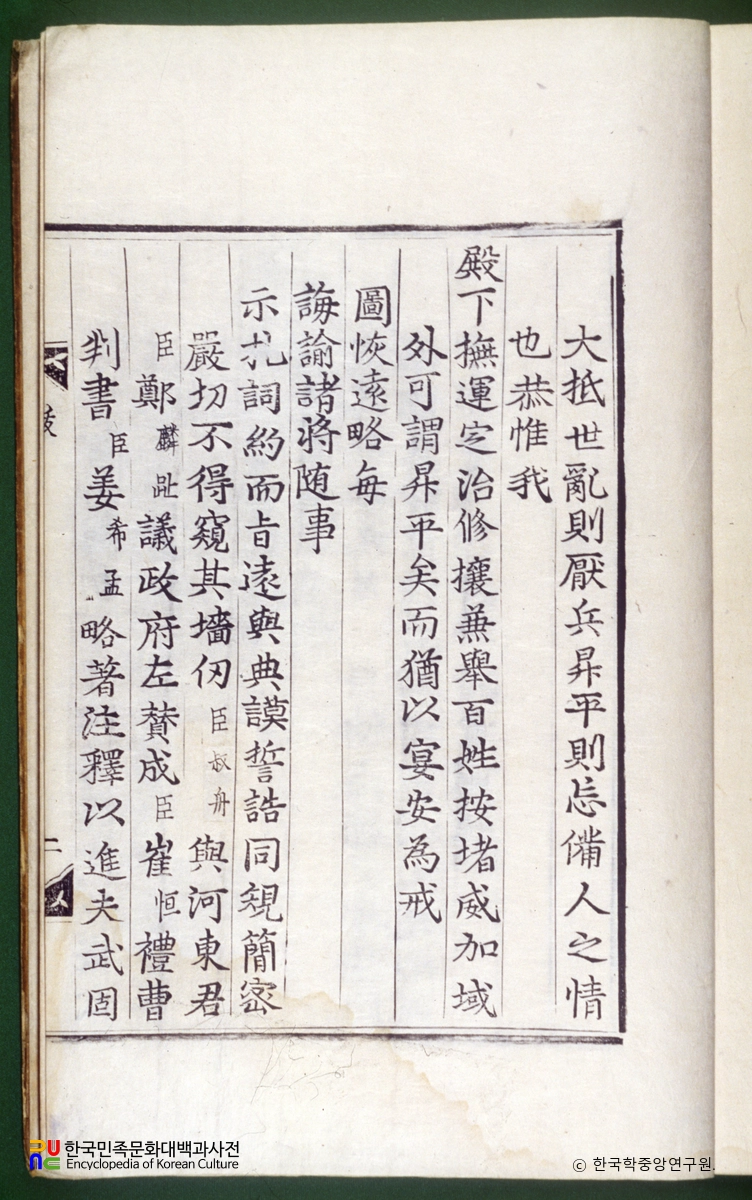 大抵世亂則厭兵昇平則忘備人之情
也恭惟我
殿下撫運定治修攘兼舉百姓按堵威加域
外可謂昇平矣而猶以宴安為戒
圖恢遠略每
誨諭諸將随事
示扎詞約而旨遠與典謨誓誥同規簡密
嚴切不得窺其墻仞臣叔舟與河東君
臣鄭麟趾議政府左賛成臣崔恒禮曹
判書臣姜希孟略著注釋以進夫武固
二
한국민족문화대백과사전
Encyclopedia of Korean Culture
© 한국학중앙연구원